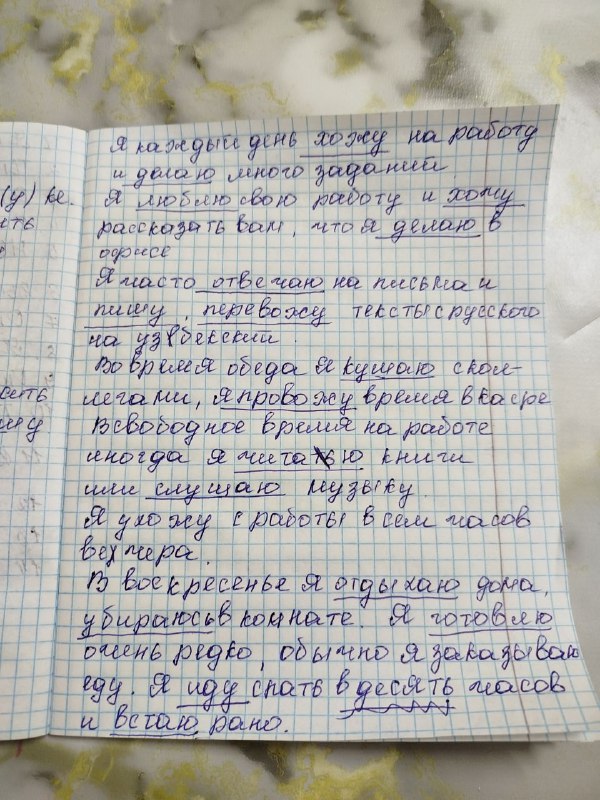 (у) ке.
сть
Я каждый день хожу на работу
и делаю много заданий.
Я люблю свою работу и хочу
рассказать вам, что я делаю в
офисе
Я часто отвечаю на письма и
пишу, перевожу тексты с русского
на узбекский.
Во время обеда я кушаю с кол-
легами, я провожу время в кафе
В свободное время на работе
иногда я читаю книги
или слушаю музыку.
Я ухожу с работы в сем часов
вечера.
В воскресенье я отдыхаю дома,
убираюсь в комнате. Я готовлю
очень редко, обычно я заказываю
еду. Я иду спать в десять часов
и встаю рано.